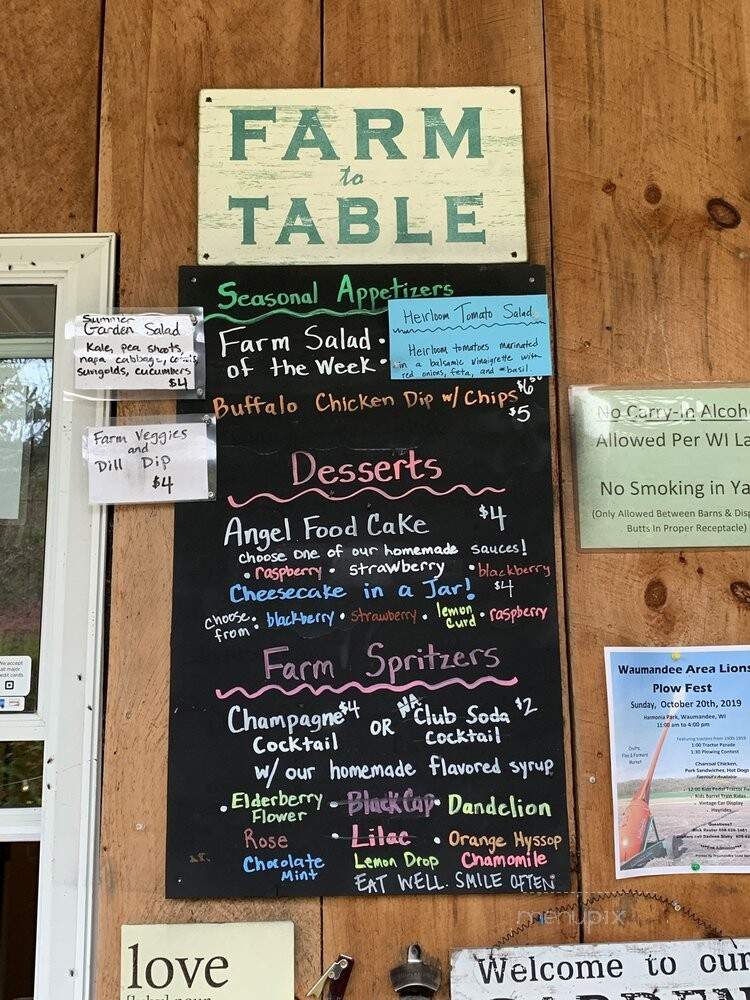 FARM
to
TABLE
Seasonal Appetizers
Farm Salad •
of the Week •
Heirloom Tomato Salad
Heirloom tomatoes marinated
in a balsamic vinaigrette with
red onions, feta, and basil.
Summer
Garden Salad
Kale, pea shoots,
napa cabbage,
sungolds, cucumbers
$4
Buffalo Chicken Dip w/ Chips
$5
Farm Veggies
and
Dill Dip
$4
Desserts
Angel Food Cake $4
choose one of our homemade sauces!
• raspberry • strawberry • blackberry
Cheesecake in a Jar! $4
choose from: • blackberry • strawberry • lemon curd • raspberry
Farm Spritzers
Champagne Cocktail $4 OR NA Club Soda Cocktail $2
w/ our homemade flavored syrup
• Elderberry Flower • Black Cap • Dandelion
Rose • Lilac • Orange Hyssop
Chocolate Mint Lemon Drop Chamomile
EAT WELL. SMILE OFTEN
No Carry-In Alcoho
Allowed Per WI La
No Smoking in Ya
(Only Allowed Between Barns & Disp
Butts In Proper Receptacle)
Waumandee Area Lions
Plow Fest
Sunday, October 20th, 2019
Harmonia Park, Waumandee, WI
11:00 am to 4:00 pm
1:00 Tractor Parade
1:30 Plowing Contest
Charcoal Chicken,
Pork Sandwiches, Hot Dogs
Kids Barrel Train Rides
Vintage Car Display
Hayrides
Questions?
We accept
all major
credit cards.
menupix
love
Welcome to our